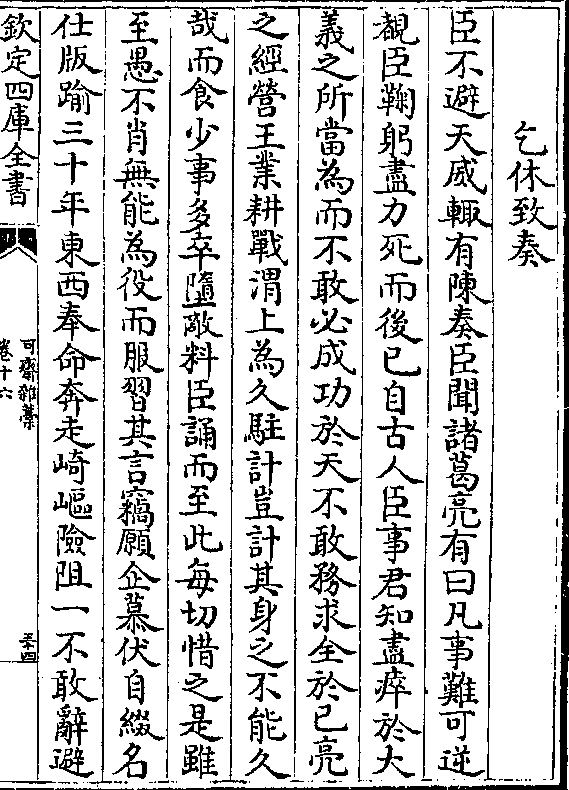 乞休致奏
臣不避天威輙有陳奏臣聞諸葛亮有曰凡事難可逆
覩臣鞠躬盡力死而後已自古人臣事君知盡瘁於大
義之所當為而不敢必成功於天不敢務求全於已亮
之經營王業耕戰渭上為久駐計豈計其身之不能久
哉而食少事多卒墮敵料臣誦而至此每切惜之是雖
至愚不肖無能為役而服習其言竊願企慕伏自綴名
仕版踰三十年東西奉命奔走崎嶇險阻一不敢辭避
欽定四庫全書
可齋雜藁
卷十六
三十四